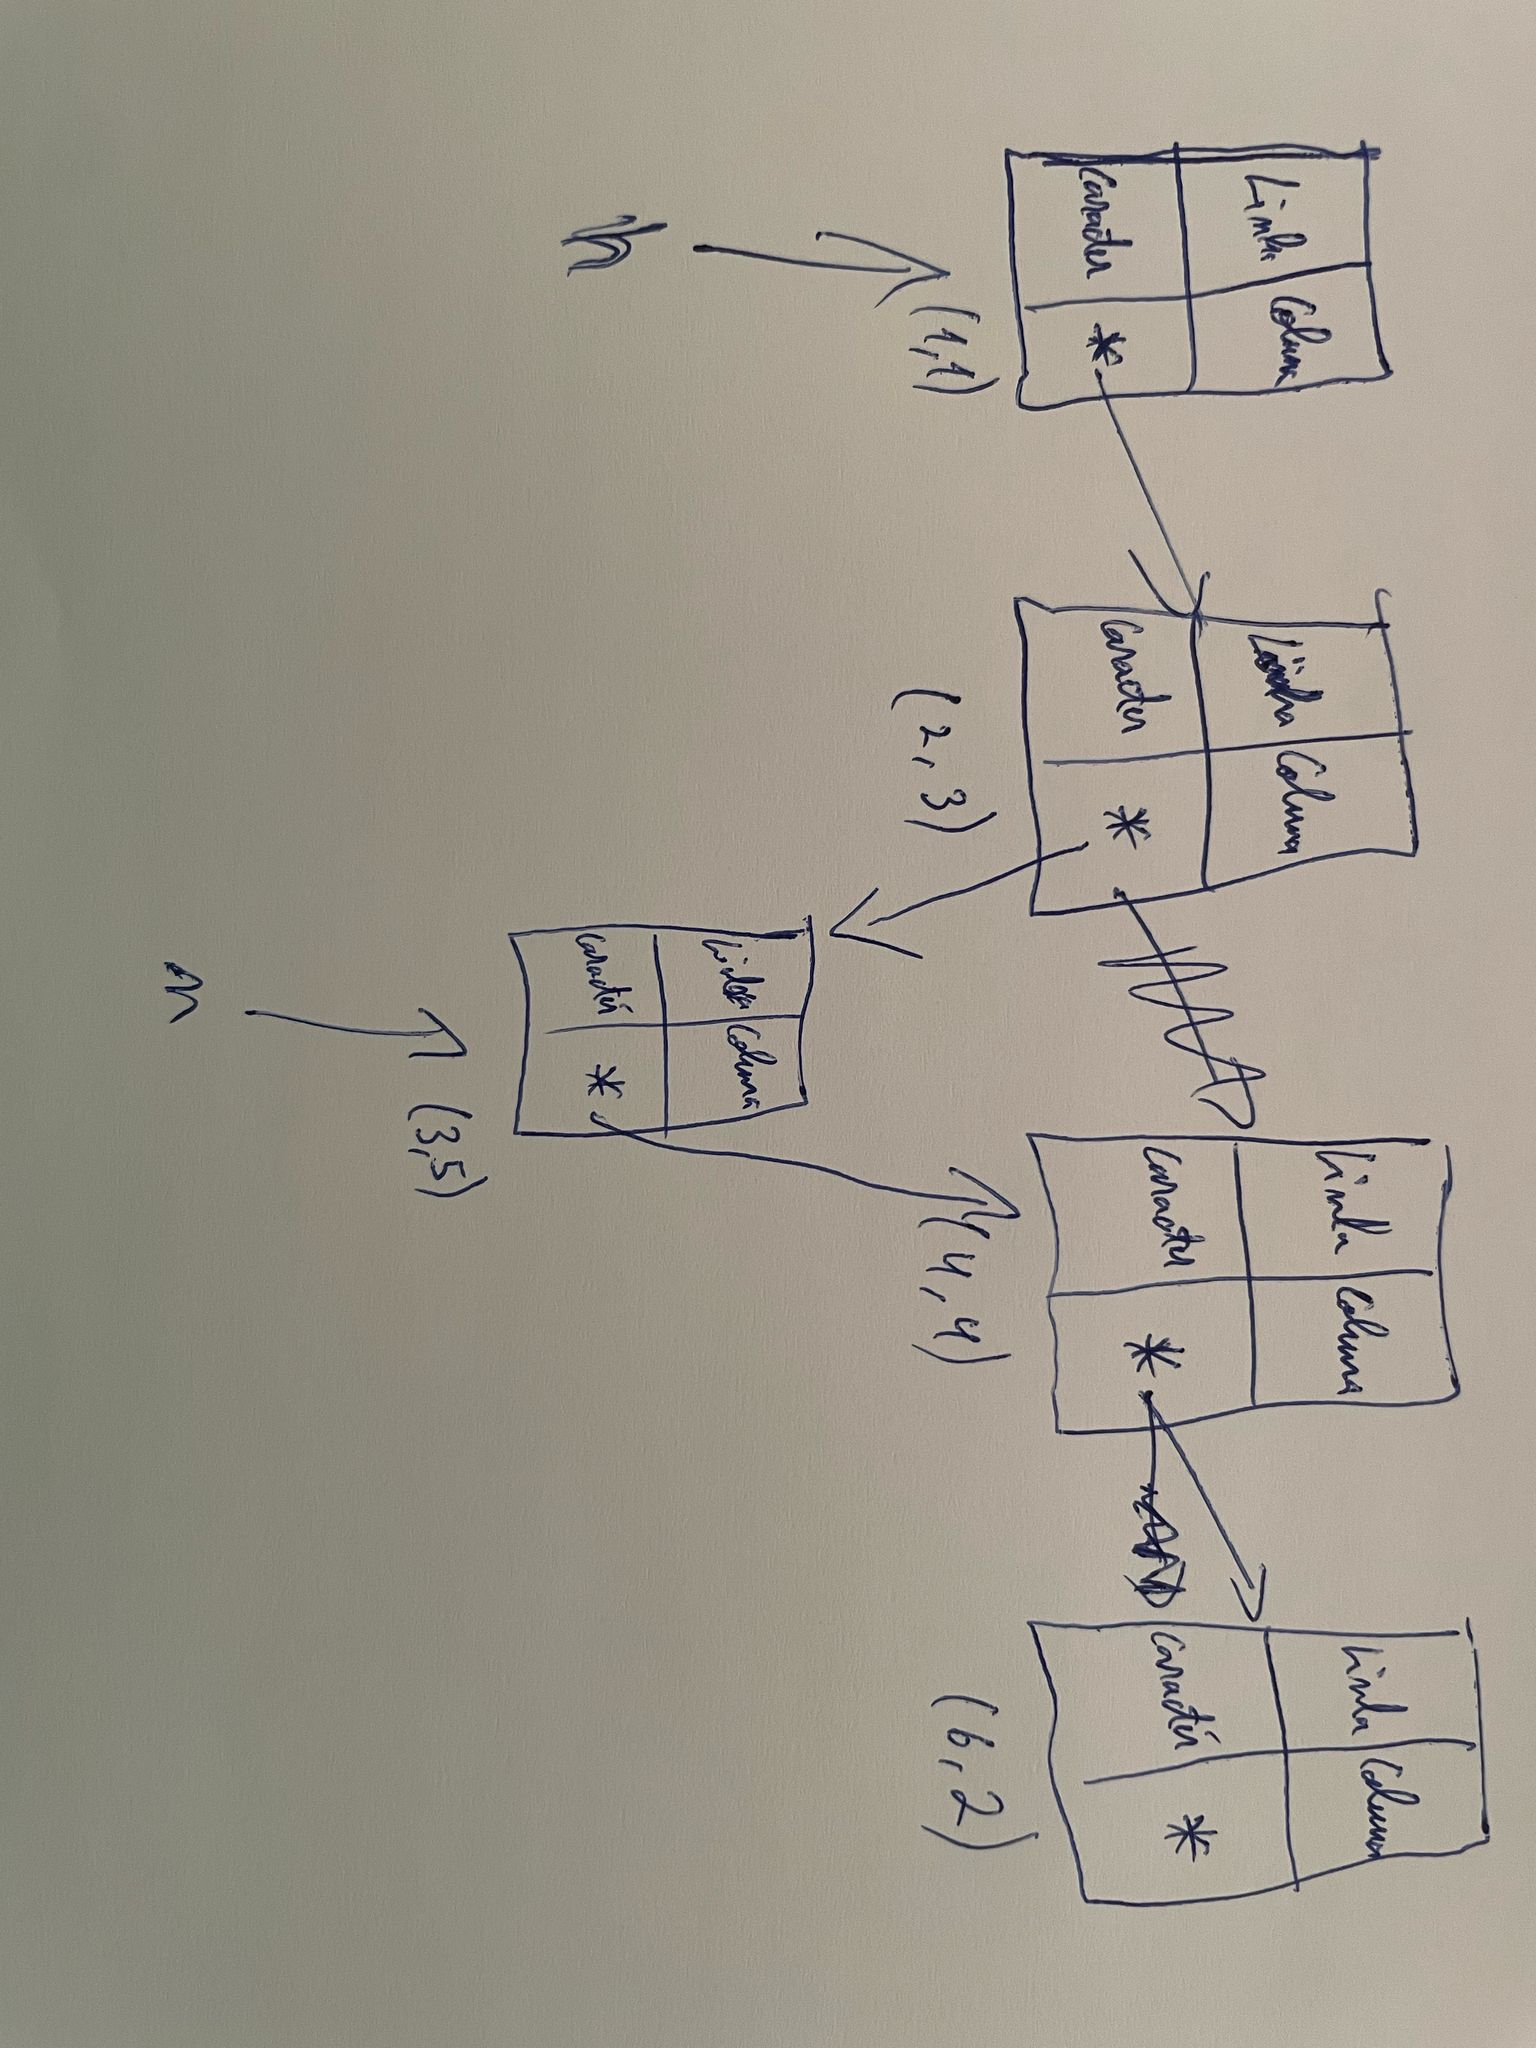 Linha Coluna
Caracter *
(1,1)
h
Linha Coluna
Caracter *
(2,3)
Linha Coluna
Caracter *
(4,4)
Linha Coluna
Caracter *
(6,2)
Linha Coluna
Caracter *
(3,5)
n